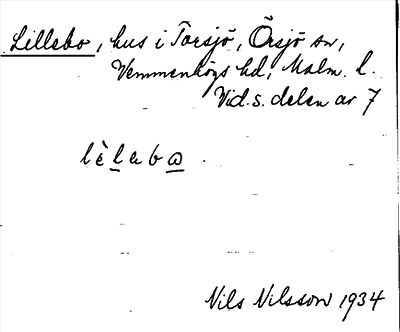 Lillebo, hus i Torsjö, Örsjö sn,
Vemmenhögs hd, Malm. l.
Vid. s. delen av 7
lèlebo
Nils Nilsson 1934